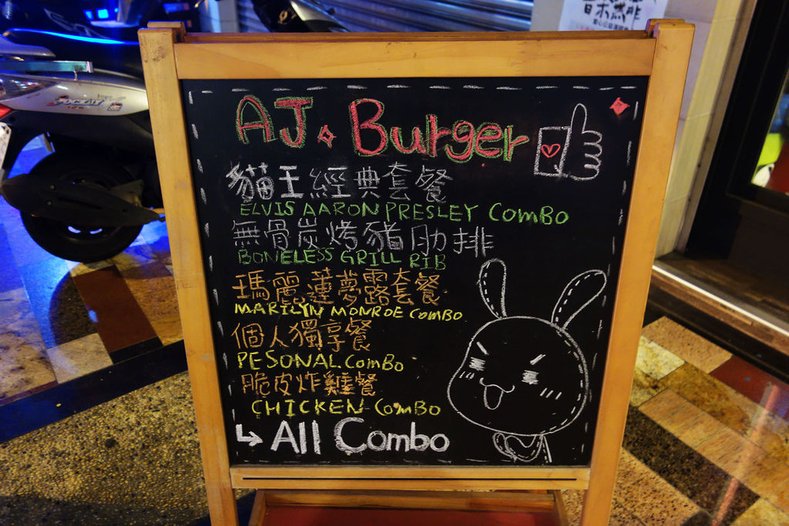 AJ Burger
貓王經典套餐
ELVIS AARON PRESLEY COMBO
無骨炭烤豬肋排
BONELESS GRILL RIB
瑪麗蓮夢露套餐
MARILYN MONROE COMBO
個人獨享餐
PESONAL COMBO
脆皮炸雞餐
CHICKEN COMBO
↳ All Combo